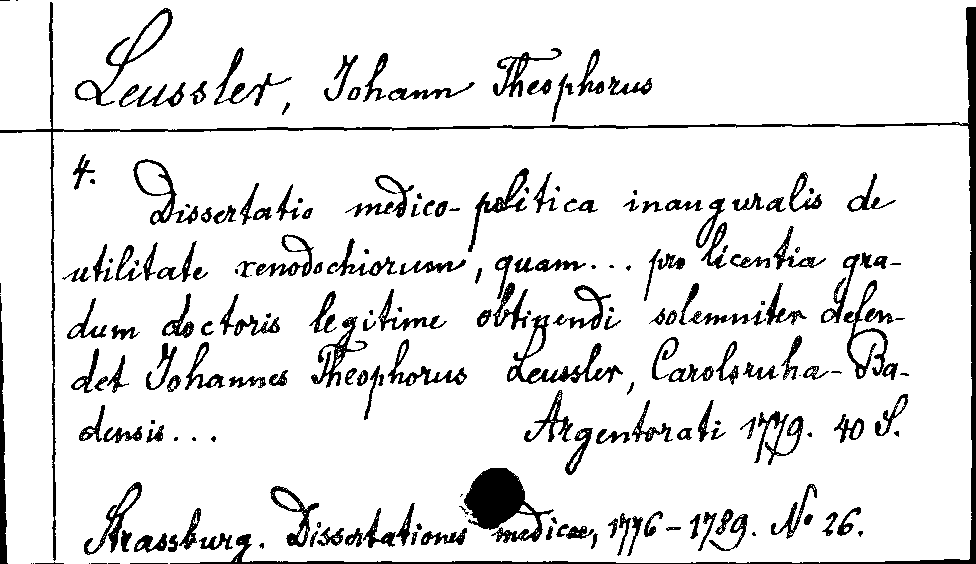 Leussler, Johann Theophorus
4.
Dissertatio medico-politica inauguralis de
utilitate xenodochiorum, quam... pro licentia gra-
dum doctoris legitime obtinendi solemniter defen-
det Johannes Theophorus Leussler, Carolsruha-Ba-
densis... Argentorati 1779. 40 S.
Strassburg. Dissertationes medicae, 1776-1789. No 26.